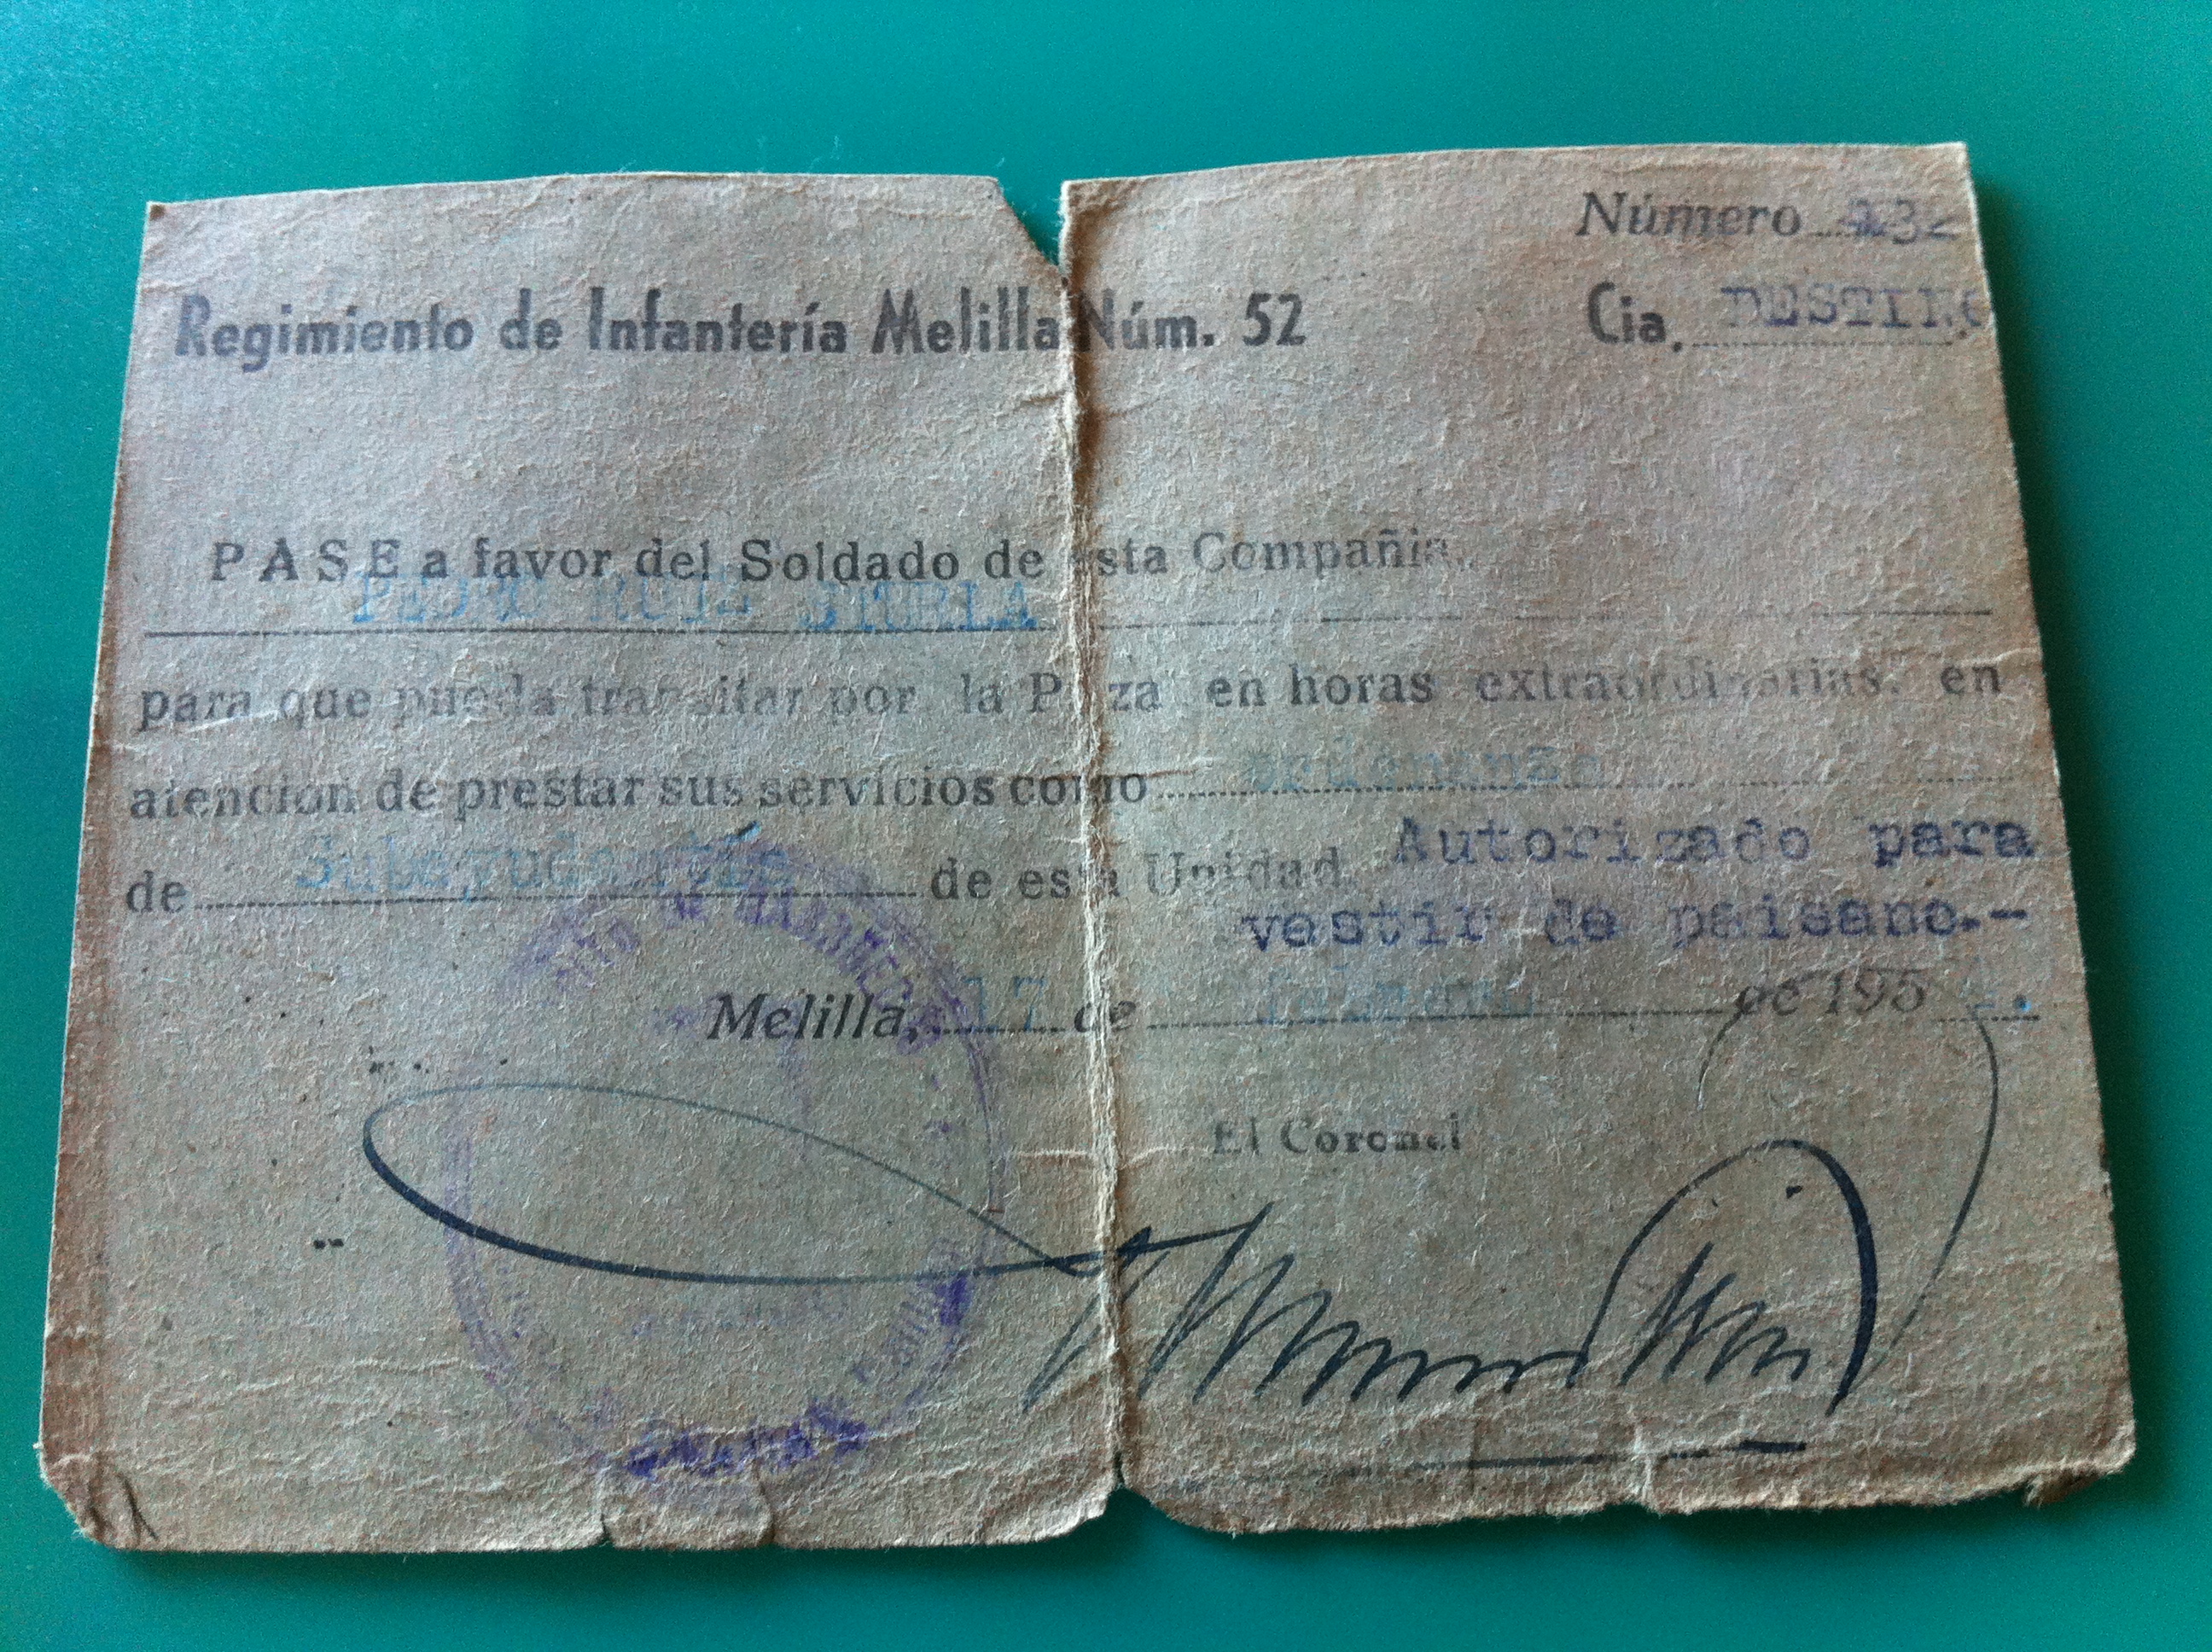 Número 132
Regimiento de Infantería Melilla Núm. 52
Cia. DESTINO
PASE a favor del Soldado de esta Compañia.
PEDRO RUIZ
para que pueda transitar por la Plaza en horas extraordinarias, en
atención de prestar sus servicios como ordenanza
de Subayudantía de esta Unidad Autorizado para
vestir de paisano.-
Melilla, 17 de febrero de 195
El Coronel